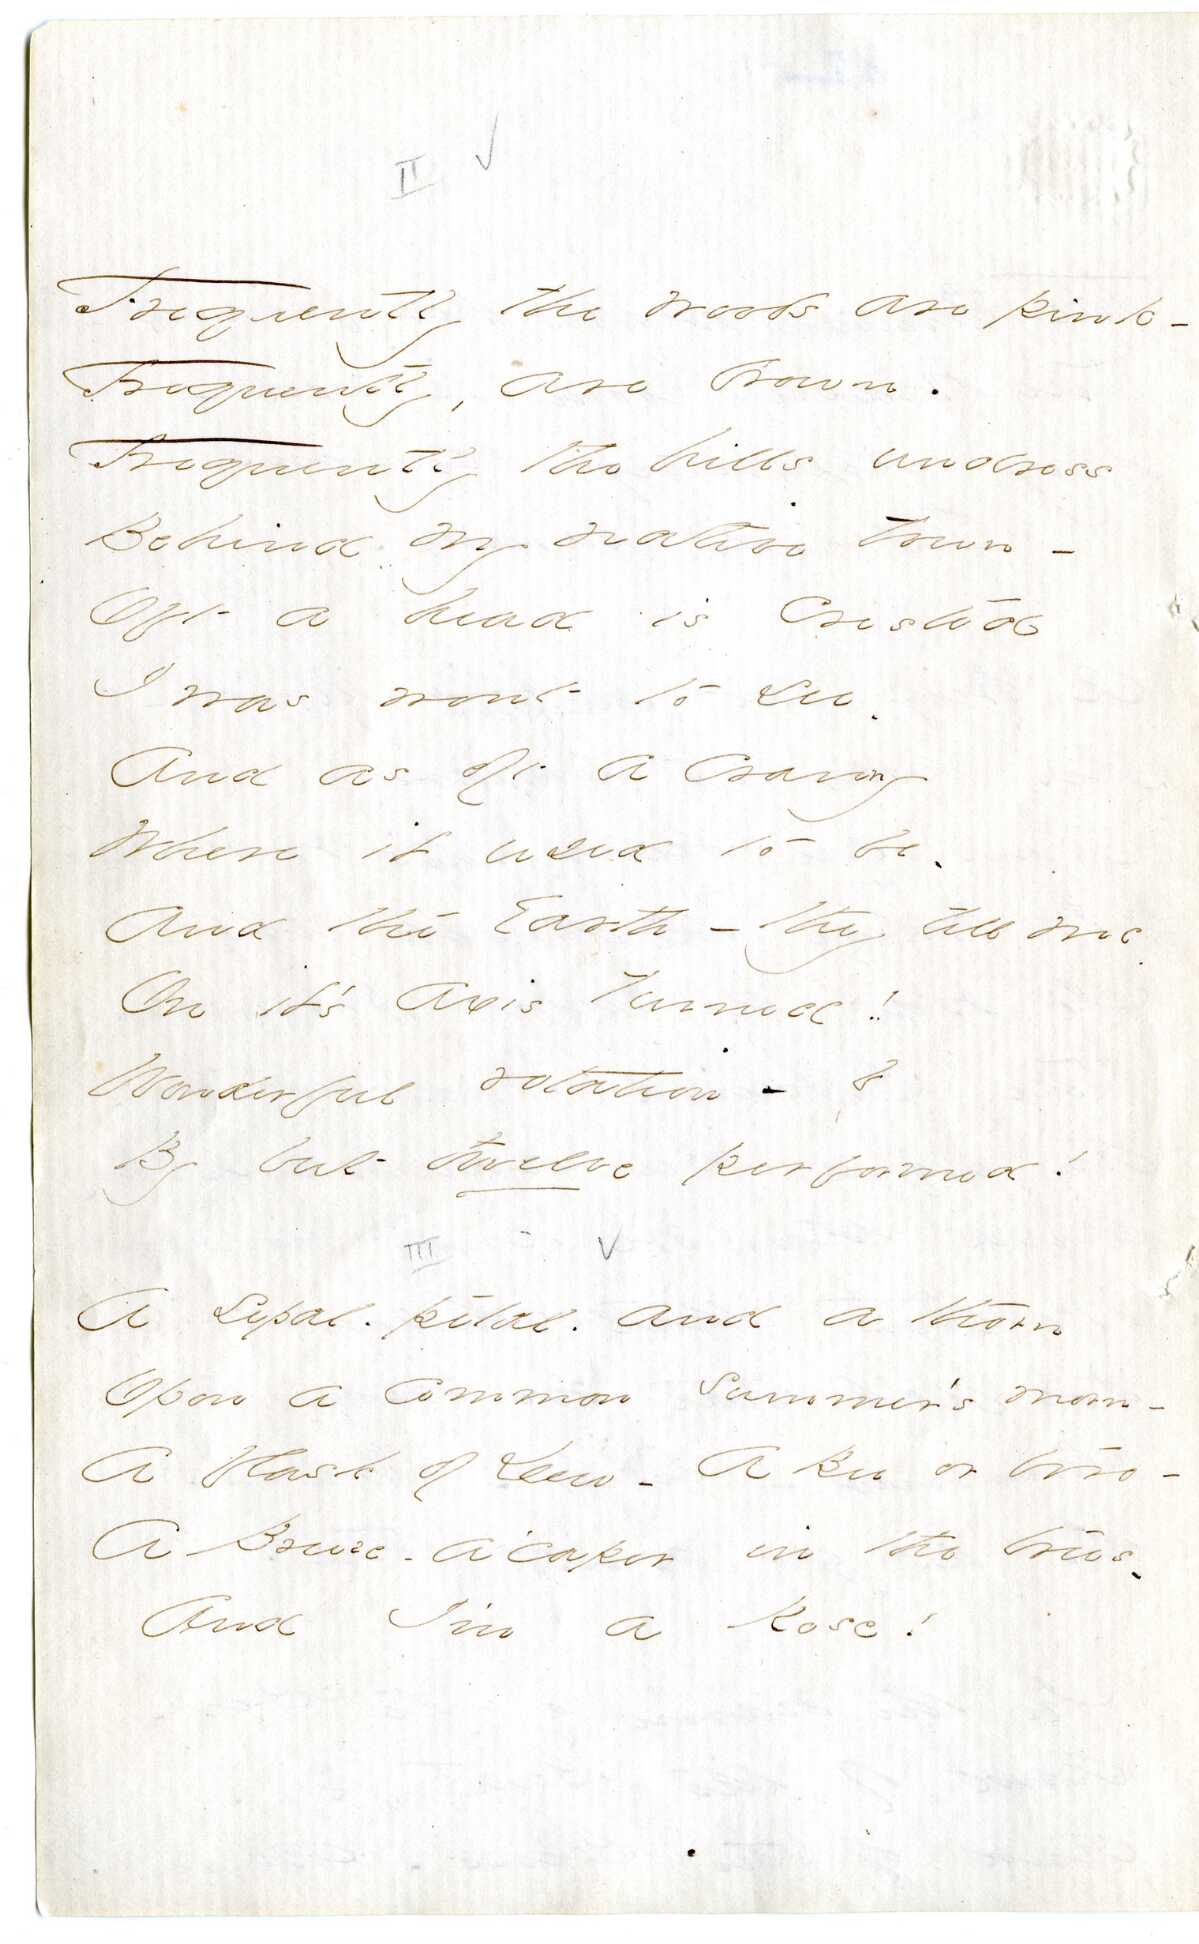 II ✓
Frequently the woods are pink -
Frequently, are brown.
Frequently the hills undress
Behind my native town -
Oft a head is crested
I was wont to see.
And as oft a cranny
Where it used to be.
And the Earth - they tell me
On it's Axis turned!
Wonderful rotation -
By but twelve performed!
III ✓
A sepal. petal. and a thorn
Upon a common summer's morn -
A flask of Dew - A Bee or two -
A Breeze - a'caper in the trees.
And I'm a Rose!